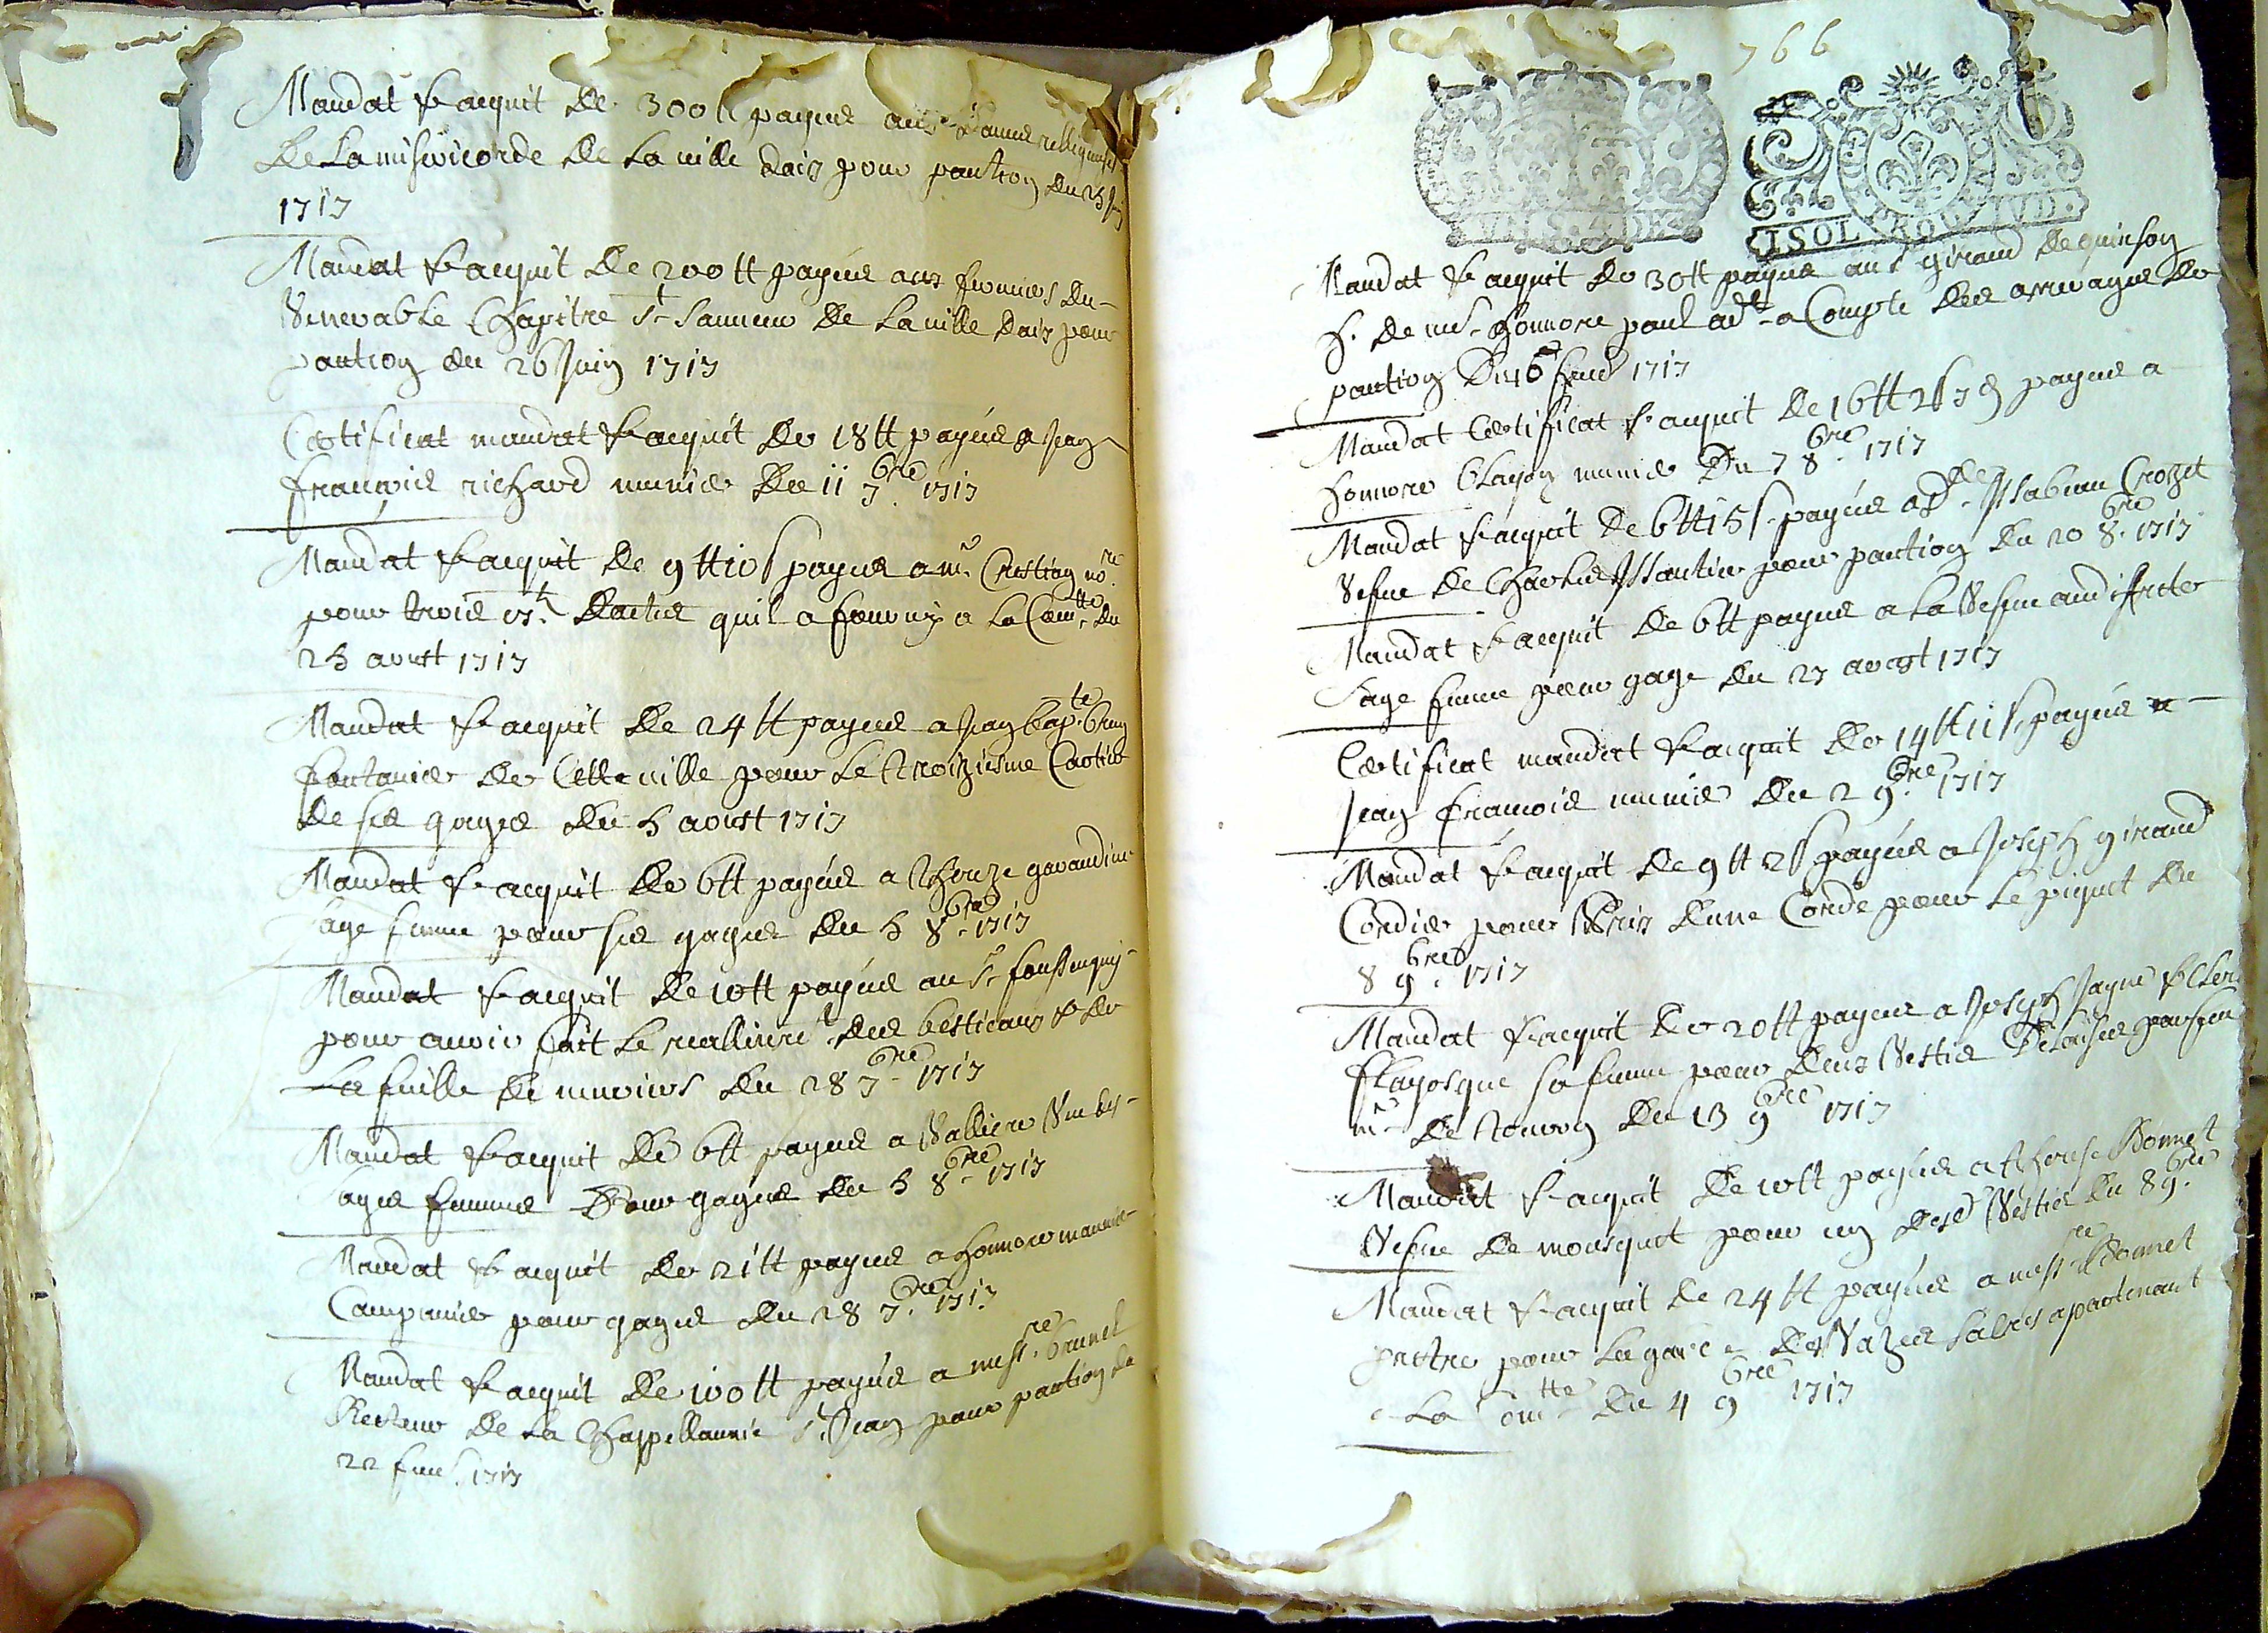 Mandat & acquit de 300 tt payees aux dames relligieuses
de la misericorde de la ville daix pour pantion du 25 juin
1717
Mandat & acquit de 200 tt payees aux fermiers du
venerable Chapitre St Sauveur de la ville daix pour
pantion du 26 Juin 1717
Certificat mandat & acquit de 18 tt payees a Jean
francois richard munier du 11 7bre 1717
Mandat & acquit de 9 tt 10 s payees a me Crestian nore
pour trois dactes quil a fourny a la Comtte du
25 aoust 1717
Mandat & acquit de 24 tt payees a Jean bapte brun
fontanier de Cette ville pour le troiziesme Cartier
de ses gages du 5 aoust 1717
Mandat & acquit de 6 tt payees a Thereze gavaudine
sage femme pour ses gages du 5 8bre 1717
Mandat & acquit de 10 tt payees au Sr
pour avoir fait le des bestiaux & de
la fuille de muriers du 28 7bre 1717
Mandat & acquit de 6 tt payees a
sages femmes pour gages du 5 8bre 1717
Mandat & acquit de 21 tt payees a honnore
Campanier pour gages du 28 7bre 1717
Mandat & acquit de 100 tt payees a messre brunel
Recteur de la Chappellannie St Jean pour pantion du
22 1717
766
ISOL
Mandat & acquit de 30 tt payees au Sr giraud de quinson
h. de mes honnore paul adt a Compte des arrerages de
pantion du 16 1717
Mandat Certificat & acquit de 16 tt 2 s 7 d payees a
honnore blayon munier du 7 8bre 1717
Mandat & acquit de 6 tt 15 s payees a Dlle Issabeau Crozet
vefue de Charles pour pantion du 20 8bre 1717
Mandat & acquit de 6 tt payees a la vefue audiffrete
sage femme pour gage du 27 aoust 1717
Certificat mandat & acquit de 14 tt 11 s payees a
Jean francois munier du 2 9bre 1717
Mandat & acquit de 9 tt 2 s payees a Joseph giraud
Cordier pour prix dune Corde pour le piquet du
8 9bre 1717
Mandat & acquit de 20 tt payees a Joseph &
flayosque sa femme pour deux vesties delaissees par feu
mr de du 13 9bre 1717
Mandat & acquit de 10 tt payees a therese Bonnet
vefue de mousquet pour un desd vesties du 8 9bre
Mandat & acquit de 24 tt payees a messre Bonnet
prettre pour la garde des vazes sacres apartenant
a la Comtte du 4 9bre 1717